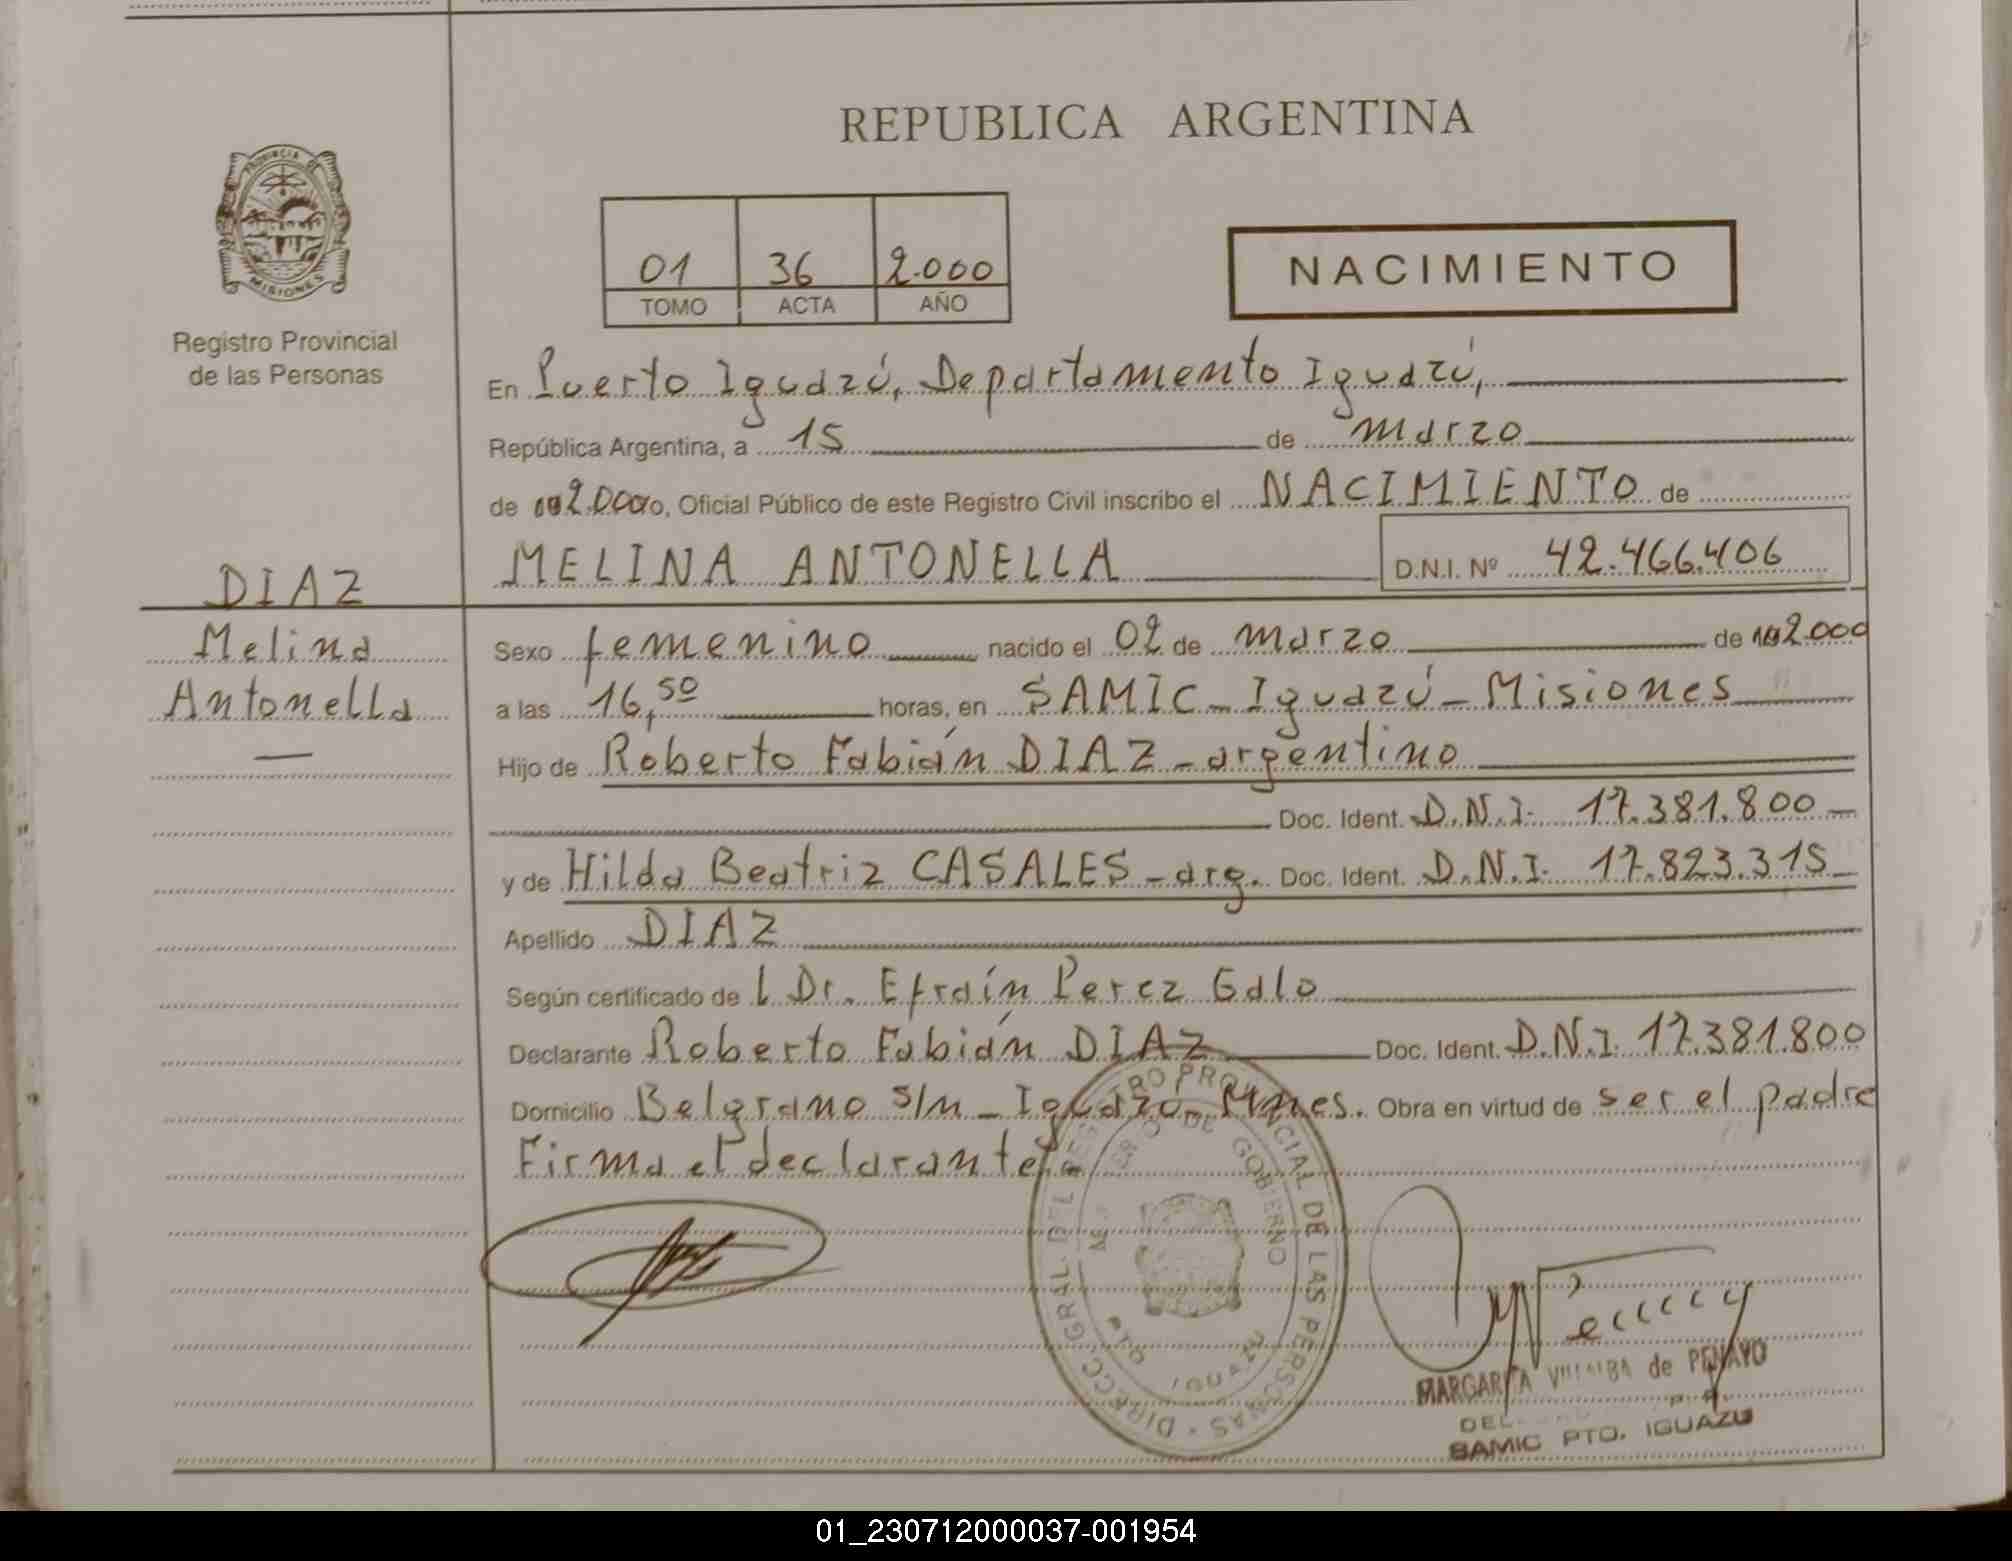 REPUBLICA ARGENTINA
PROVINCIA DE
MISIONES
Registro Provincial
de las Personas
01 36 2.000
TOMO ACTA AÑO
NACIMIENTO
En Puerto Iguazú, Departamento Iguazú,
República Argentina, a 15 de marzo
de 2.000, Oficial Público de este Registro Civil inscribo el NACIMIENTO de
MELINA ANTONELLA D.N.I. Nº 42.466.406
DIAZ
Melina
Antonella
Sexo femenino nacido el 02 de marzo de 2.000
a las 16,50 horas, en SAMIC - Iguazú - Misiones
Hijo de Roberto Fabián DIAZ - argentino
Doc. Ident. D.N.I. 17.381.800 -
y de Hilda Beatriz CASALES - arg. Doc. Ident. D.N.I. 17.823.315 -
Apellido DIAZ
Según certificado de l Dr. Efraín Perez Galo
Declarante Roberto Fabián DIAZ Doc. Ident. D.N.I. 17.381.800
Domicilio Belgrano s/n - Iguazú - Mnes. Obra en virtud de ser el padre
Firma el declarante
DIRECC. GRAL. DEL REGISTRO PROVINCIAL DE LAS PERSONAS
DE GOBIERNO
IGUAZU
MARGARITA VILLALBA de PENAYO
DEL
SAMIC PTO. IGUAZU
01_230712000037-001954